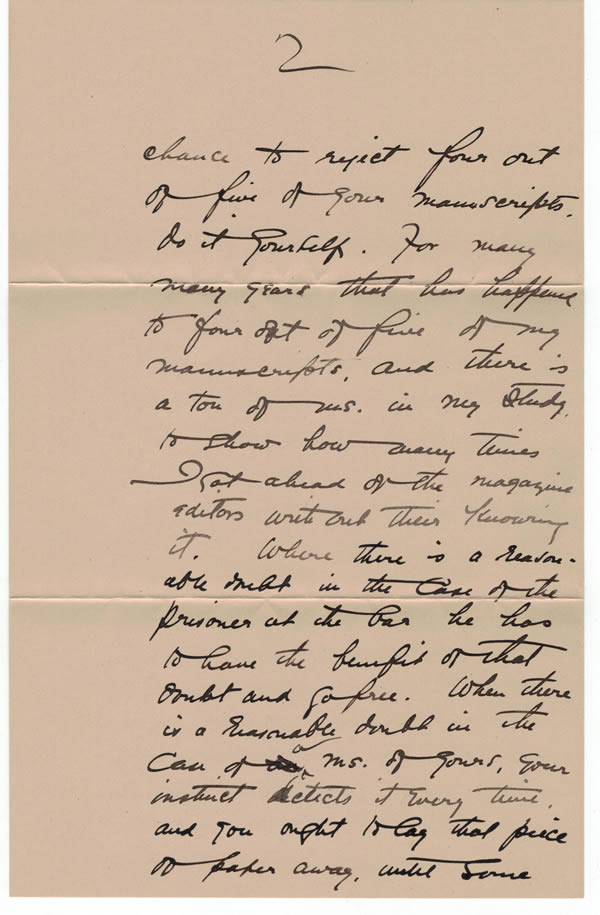 2
chance to reject four out
of five of your manuscripts.
do it yourself. For many
many years that has happened
to four out of five of my
manuscripts, and there is
a ton of ms. in my study,
to show how many times
I got ahead of the magazine
editors without their knowing
it. Where there is a reason-
able doubt in the case of the
prisoner at the bar he has
to have the benefit of that
doubt and go free. When there
is a reasonable doubt in the
case of a ms. of yours, your
instinct detects it every time,
and you ought to lay that piece
of paper away, until some